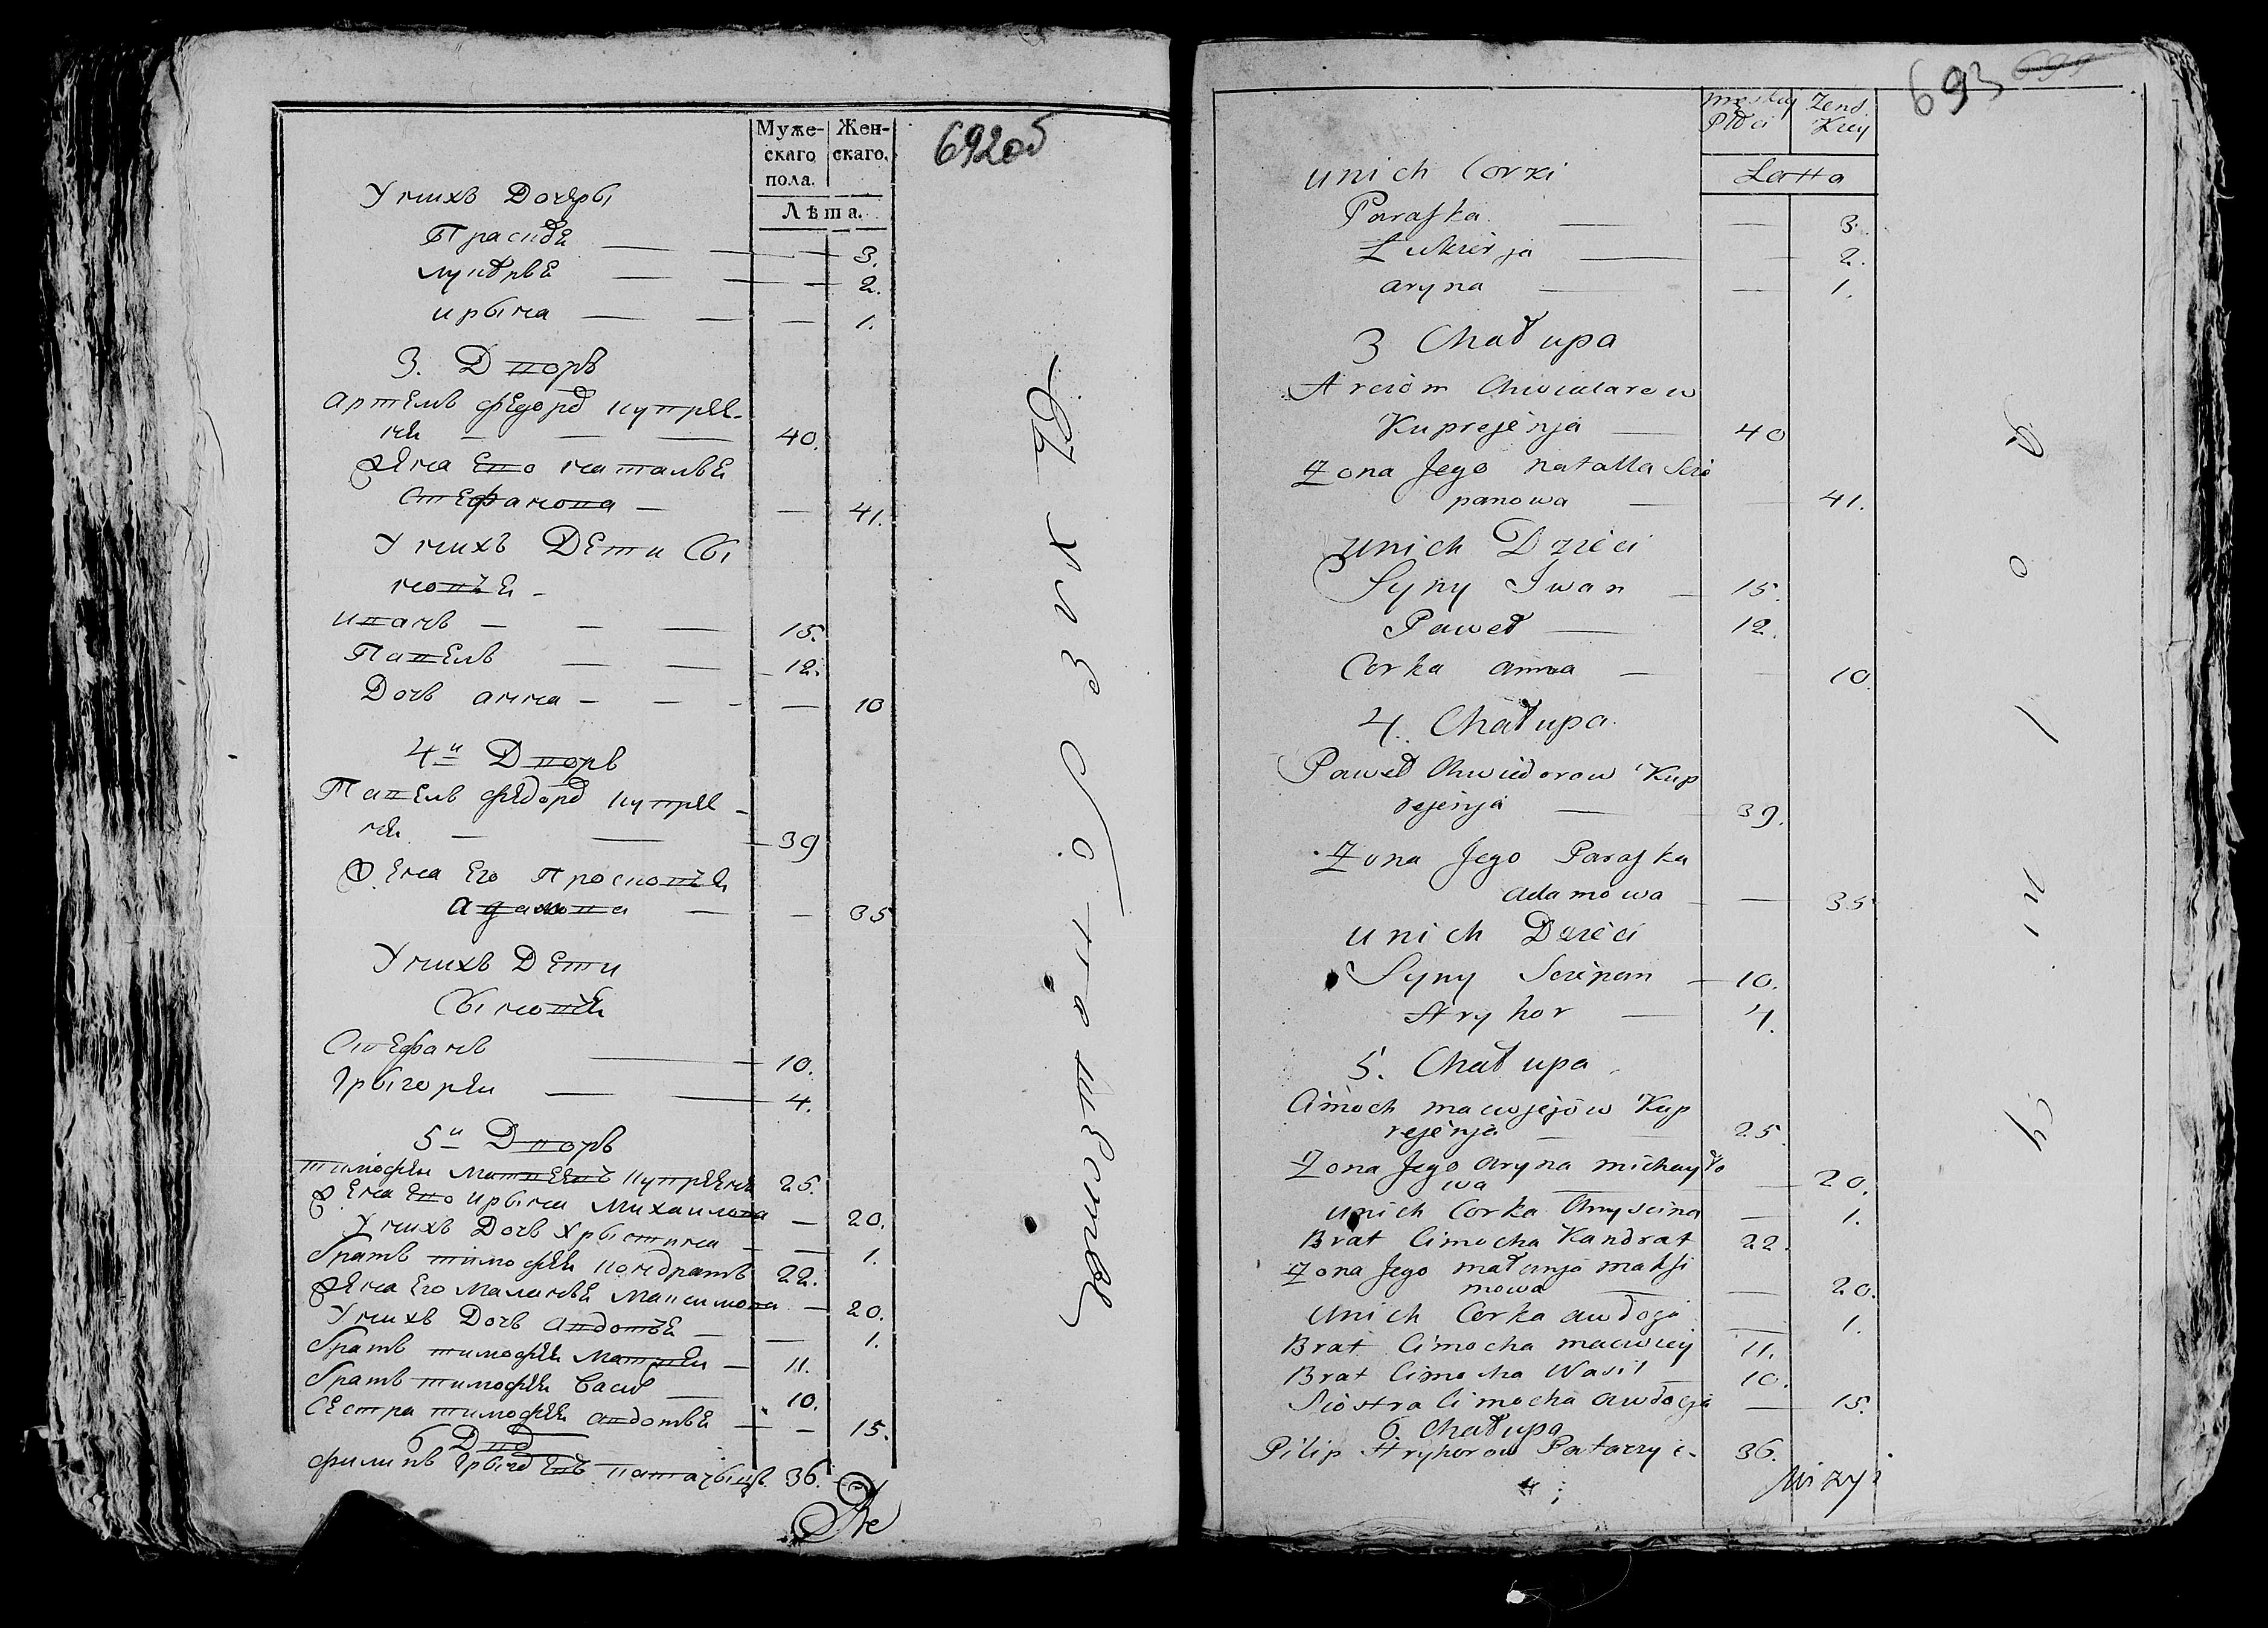 Муже- Жен-
скаго скаго.
пола.
Лѣта.
692об
У нихъ Дочеры
Праскв
3.
Лукерья
2.
ирына
1.
3. Дворъ
Артемъ федоро купрее-
ня 40.
Жена Его наталья
Стефанова 41.
У нихъ Дети Сы
новья
иванъ 15.
Павелъ 12.
Дочь анна 10
4й Дворъ
Павелъ федоро купрее-
ня 39
Жена Его Просковья
адамова 35
У нихъ Дети
Сыновья
Стефанъ 10.
Грыгорей 4.
5й Дворъ
тимофей Матвеевъ купрееня 25.
Жена Его ирына Михаилова 20.
У нихъ Дочь Хрыстина 1.
братъ тимофея кондратъ 22.
Жена Его Маланья Максимова 20.
У нихъ Дочь авдотья 1.
братъ тимофея Матвей 11.
братъ тимофея Васил 10.
Сестра тимофея авдотья 15.
6 Дво
филипъ Грыго евъ 36.
693
Męskiey Żeńs
Płci kiey
Latta
unich Corki
Paraska 3.
Łukierja 2.
aryna 1.
3 Chałupa
Arciom Chwiedarow
Kuprejenja 40
Żona Jego natalla Scie
panowa 41.
unich Dzieci
Syny Iwan 15.
Paweł 12.
Corka anna 10.
4. Chałupa
Paweł Chwiedorow Kup
rejenja 39.
Żona Jego Paraska
adamowa 35
unich Dzieci
Syny Sciepan 10.
Hryhor 4.
5. Chałupa
Cimoch maciejów Kup
rejenja 25.
Żona Jego aryna michayło
wa 20.
unich Corka Chryscina 1.
Brat Cimocha Kandrat 22.
Żona Jego małanja maksi
mowa 20.
unich Corka awdocja 1.
Brat Cimocha maciey 11.
Brat Cimocha Wasil 10.
Siostra Cimocha awdocja 15.
6 Chałupa
Pilip Hryhorow 36.